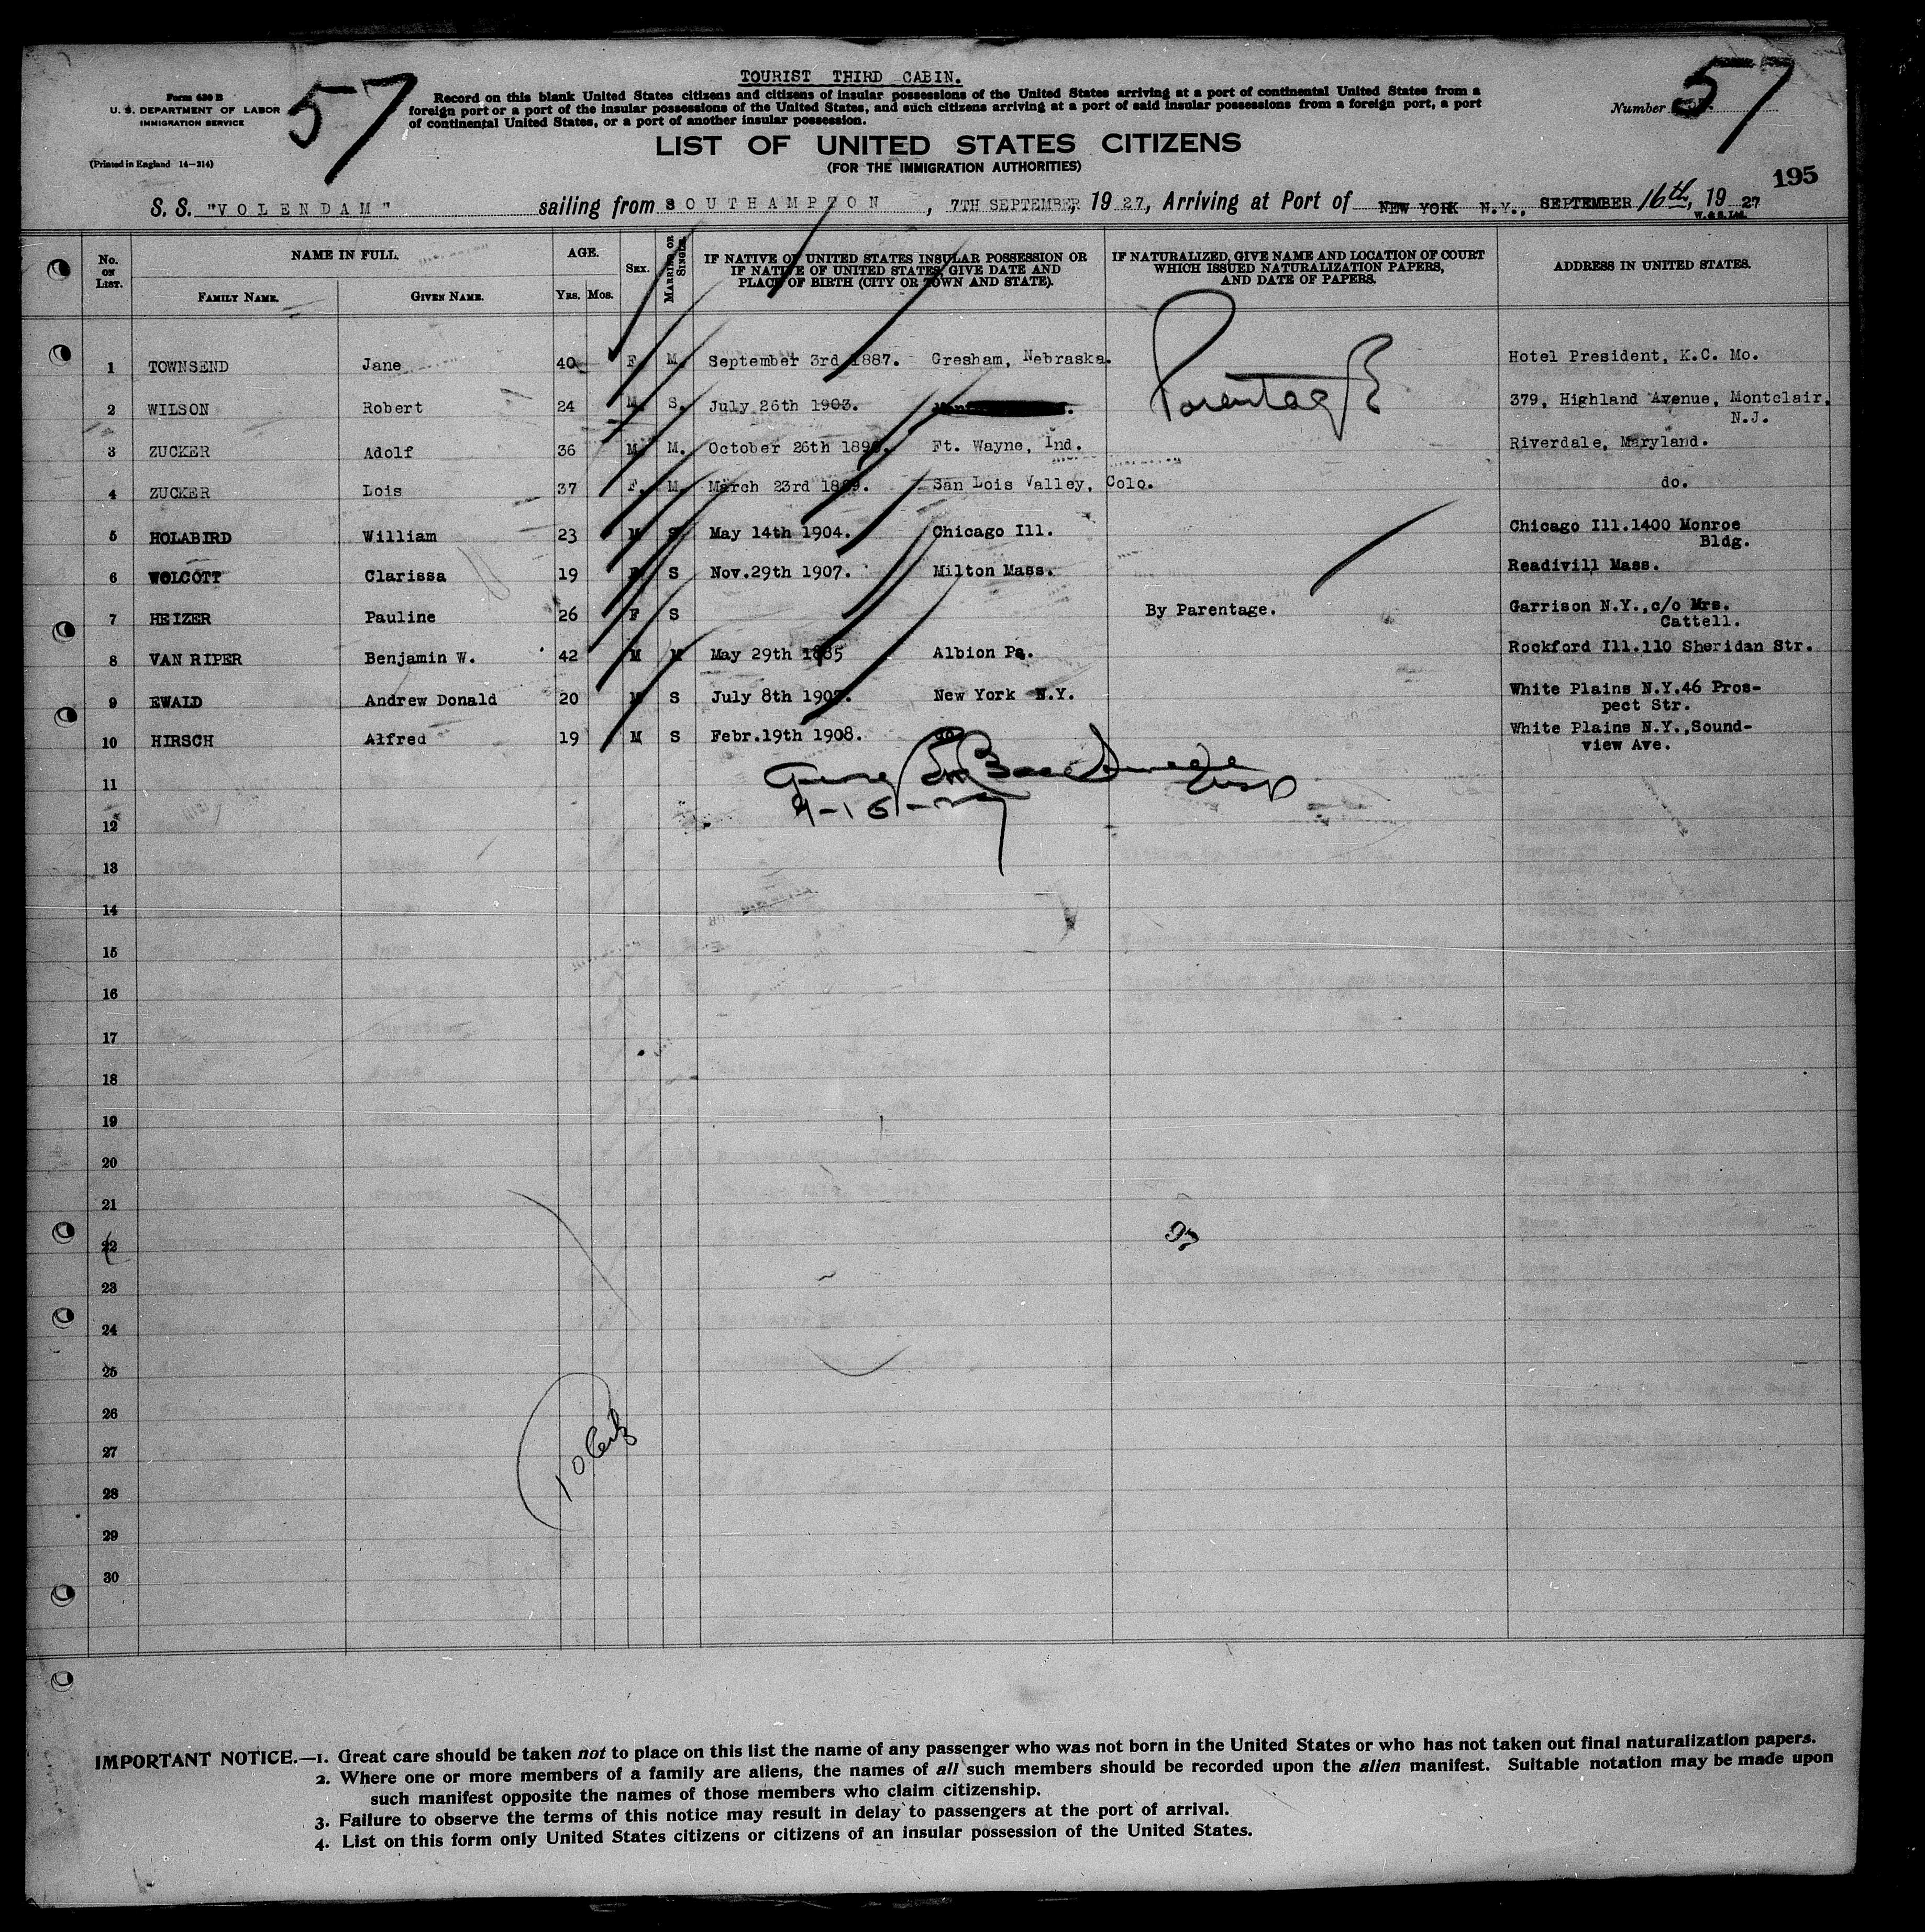 TOURIST THIRD CABIN.
Form 630 B
U. S. DEPARTMENT OF LABOR
IMMIGRATION SERVICE
(Printed in England 14—214)
57
Record on this blank United States citizens and citizens of insular possessions of the United States arriving at a port of continental United States from a
foreign port or a port of the insular possessions of the United States, and such citizens arriving at a port of said insular possessions from a foreign port, a port
of continental United States, or a port of another insular possession.
Number 57
LIST OF UNITED STATES CITIZENS
(FOR THE IMMIGRATION AUTHORITIES)
195
S. S. "VOLENDAM" sailing from SOUTHAMPTON, 7TH SEPTEMBER, 1927, Arriving at Port of NEW YORK N.Y., SEPTEMBER 16th, 1927
W. & S. Ltd.
No. ON LIST.
NAME IN FULL.
FAMILY NAME.
GIVEN NAME.
AGE.
YRS. MOS.
SEX.
MARRIED OR SINGLE.
IF NATIVE OF UNITED STATES INSULAR POSSESSION OR
IF NATIVE OF UNITED STATES, GIVE DATE AND
PLACE OF BIRTH (CITY OR TOWN AND STATE).
IF NATURALIZED, GIVE NAME AND LOCATION OF COURT
WHICH ISSUED NATURALIZATION PAPERS,
AND DATE OF PAPERS.
ADDRESS IN UNITED STATES.
1 TOWNSEND Jane 40 F. M. September 3rd 1887. Gresham, Nebraska. Hotel President, K.C. Mo.
2 WILSON Robert 24 M. S. July 26th 1903. Parentage 379, Highland Avenue, Montclair,
N.J.
3 ZUCKER Adolf 36 M. M. October 26th Ft. Wayne, Ind. Riverdale, Maryland.
4 ZUCKER Lois 37 F. M. March 23rd San Lois Valley, Colo. do.
5 HOLABIRD William 23 M S May 14th 1904. Chicago Ill. Chicago Ill.1400 Monroe
Bldg.
6 WOLCOTT Clarissa 19 F S Nov.29th 1907. Milton Mass. Readivill Mass.
7 HEIZER Pauline 26 F S By Parentage. Garrison N.Y.,c/o Mrs.
Cattell.
8 VAN RIPER Benjamin W. 42 M M May 29th 1885 Albion Pa. Rockford Ill.110 Sheridan Str.
9 EWALD Andrew Donald 20 M S July 8th New York N.Y. White Plains N.Y.46 Pros-
pect Str.
10 HIRSCH Alfred 19 M S Febr.19th 1908. do. White Plains N.Y.,Sound-
view Ave.
11
9-16-27
12
13
14
15
16
17
18
19
20
21
22
97
23
24
25
26
27
28
29
30
IMPORTANT NOTICE.—1. Great care should be taken not to place on this list the name of any passenger who was not born in the United States or who has not taken out final naturalization papers.
2. Where one or more members of a family are aliens, the names of all such members should be recorded upon the alien manifest. Suitable notation may be made upon
such manifest opposite the names of those members who claim citizenship.
3. Failure to observe the terms of this notice may result in delay to passengers at the port of arrival.
4. List on this form only United States citizens or citizens of an insular possession of the United States.